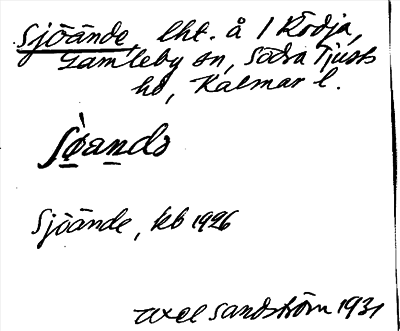 Sjöände, lht. å 1 Rödja,
Gamleby sn, Södra Tjusts
hd, Kalmar l.
Sjöände, kb 1926
Axel Sandström 1931